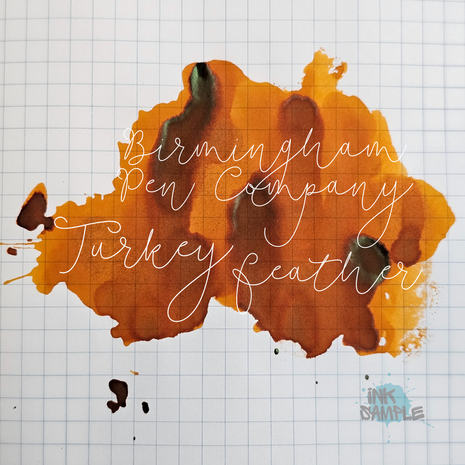 Birmingham
Pen Company
Turkey Feather
INK
SAMPLE